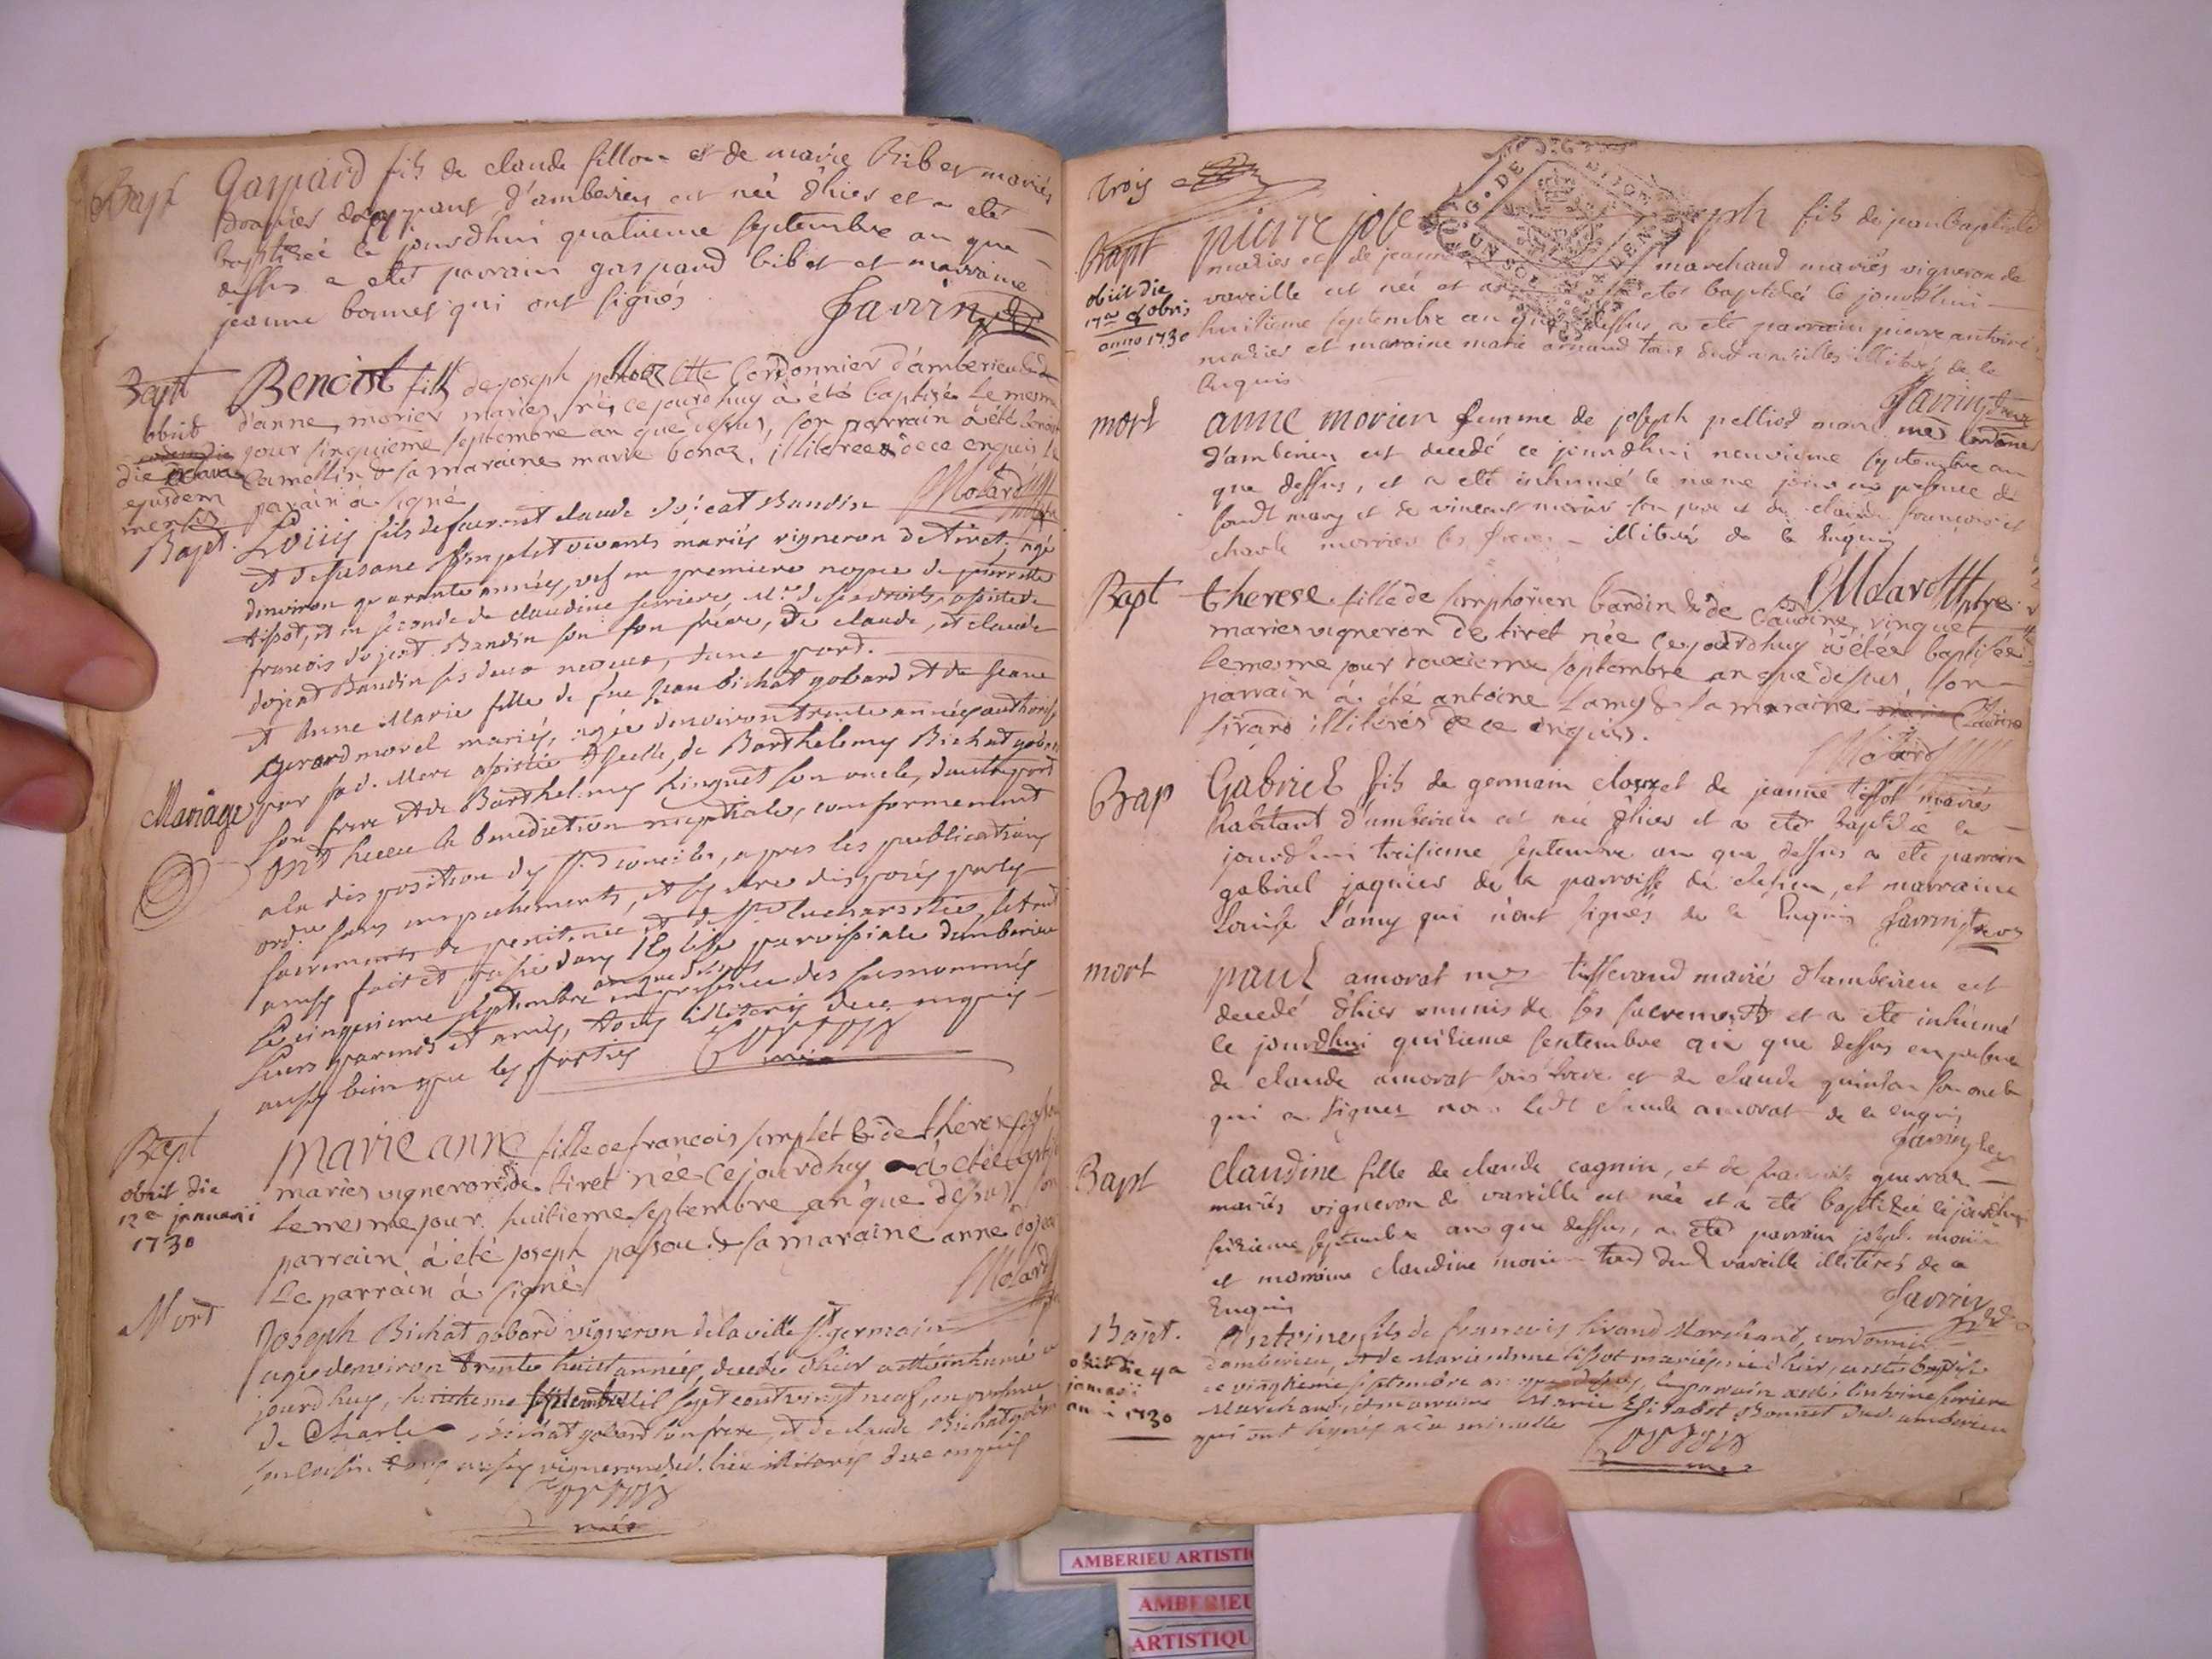 Bapt
Gaspard fils de claude fillon et de marie Ribet mariés
d'amberieu est née d'hier et a eté
baptizeé le jourdhui quatrieme septembre an que
dessus a eté parrain gaspard bibet et marraine
jeanne bonnet qui ont signés
Favrin
Bapt
obiit
die octava
ejusdem
mensis
Benoist fils de joseph Cordonnier d'amberieu & de
d'anne morier mariés, né, ce jourdhuy à été baptisé le mesme
jour sinquieme septembre an que dessus, son parrain à été benoit
Camellin & sa maraine marie bonaz, illiterée de ce enquis le
parain à signé
Molard
Bapt.
Louis fils de claude dujeat Bandin
et de susane simplet vivants mariés vigneron de tiret, agé
denviron quarante années, vef en premiere nopce de pierrette
tissot, et en seconde de claudine ferriere, Mre de ses droits, assisté de
francois dujeat Bandin son frère, de claude, et claude
dujeat Bandin ses deux neveux, dune part.
et Anne Marie fille de feu Jean Bichat gobard et de Jeane
Gerard morel mariés, agée denviron trente années authorisée
Mariage
par sad. Mere assistée d'icelle, de Barthelemy Bichat gobard
son frere et de Barthelemy hinguet son oncle, dautre part
Ont receu la benediction nuptiale, conformement
a la disposition des Sts conciles, apres les publications
ordres sans empechements, et sy etre disposés par les
sacrements de penitence et de Ste eucharistie, le tout
ainsy fait et passé dans l'Eglise paroissiale damberieu
an que dessus
le cinquieme septembre en presence des susnommés
leurs parents et amis, tous illiterés de ce enquis
ausy bien que les parties
Bapt
obiit die
12a januarii
1730
Marie anne fille de francois simplet & de therese passou
mariés vignerons de tiret née ce jourdhuy à étée baptisée
le mesme jour huitieme septembre an que dessus son
parrain à été joseph passou & sa maraine anne dojeat
le parrain à signé
Molard
Mort
Joseph Bichat gobard vigneron de la ville St germain
agé denviron trente huict années, decedé d'hier a été inhumé ce
jourdhuy, huictieme septembre mil sept cent vingt neuf, en presence
de Charles bichat gobard son frere, et de claude Bichat gobard
son cousin tous ausy vignerons dud. lieu illiterés de ce enquis
trois
Bapt
obiit die
17a 9bris
anno 1730
pierre joseph fils de jean baptiste
maries et de jeanne marchand mariés vigneron de
vareille est né et a eté baptizé le jourdhui
huitieme septembre an que dessus a eté parrain pierre antoine
maries et maraine marie arnaud tous dud vareilles illiterés de ce
Enquis
Favrin
mort
anne morier femme de joseph pelliod
d'amberieu est decedé ce jourdhui neuvieme septembre an
que dessus, et a eté inhumé le meme jour en presence de
soudt mary et de vincent morier son pere et de claude francois et
charle morrier ses freres illiterés de ce Enquis
Molard ptre
Bapt
therese fille de simphorien bardin & de Claudine vinguet
maries vigneron de tiret née ce jourdhuy à étée baptisée
le mesme jour septembre an que dessus son
parrain à été antoine lamy & sa maraine Claudine
sirand illiterés de ce enquis.
Molard
Bap
Gabriel fils de germain et de jeanne tissot mariés
habitant d'amberieu est né d'hier et a eté baptizé le
jourdhui treisieme septembre an que dessus a eté parrain
gabriel jaquier de la parroisse de, et marraine
Louise Lamy qui n'ont signés de ce Enquis Favrin
mort
paul amorat tisserand marié d'amberieu est
decedé d'hier munis de ses sacrements et a eté inhumé
ce jourdhui quisieme septembre an que dessus en presence
de claude amorat son frere et de claude guinton son oncle
qui a signer non ledt claude amorat de ce enquis
Favrin
Bapt
Claudine fille de claude cagnin, et de
mariés vigneron de vareille est née et a eté baptizeé le jourdhui
seizieme septembre an que dessus, a eté parrain joseph monin
et marraine claudine monin tous dud vareille illiterés de ce
Enquis
Favrin
Bapt.
obiit die 4a
januarii
anni 1730
Antoine fils de francois Sirand Marchand, cordonnier
damberieu, et de Marie Anne tissot mariés né d'hier, a esté baptisé
ce vingtieme septembre an que dessus, le parrain a eté Antoine ferriere
Marchand, et marraine Marie Elisabet Bonnet dud. amberieu
qui ont signés a la minutte
G. DE DIJON
UN SOL
AMBERIEU ARTISTI
AMBERIEU
ARTISTIQU